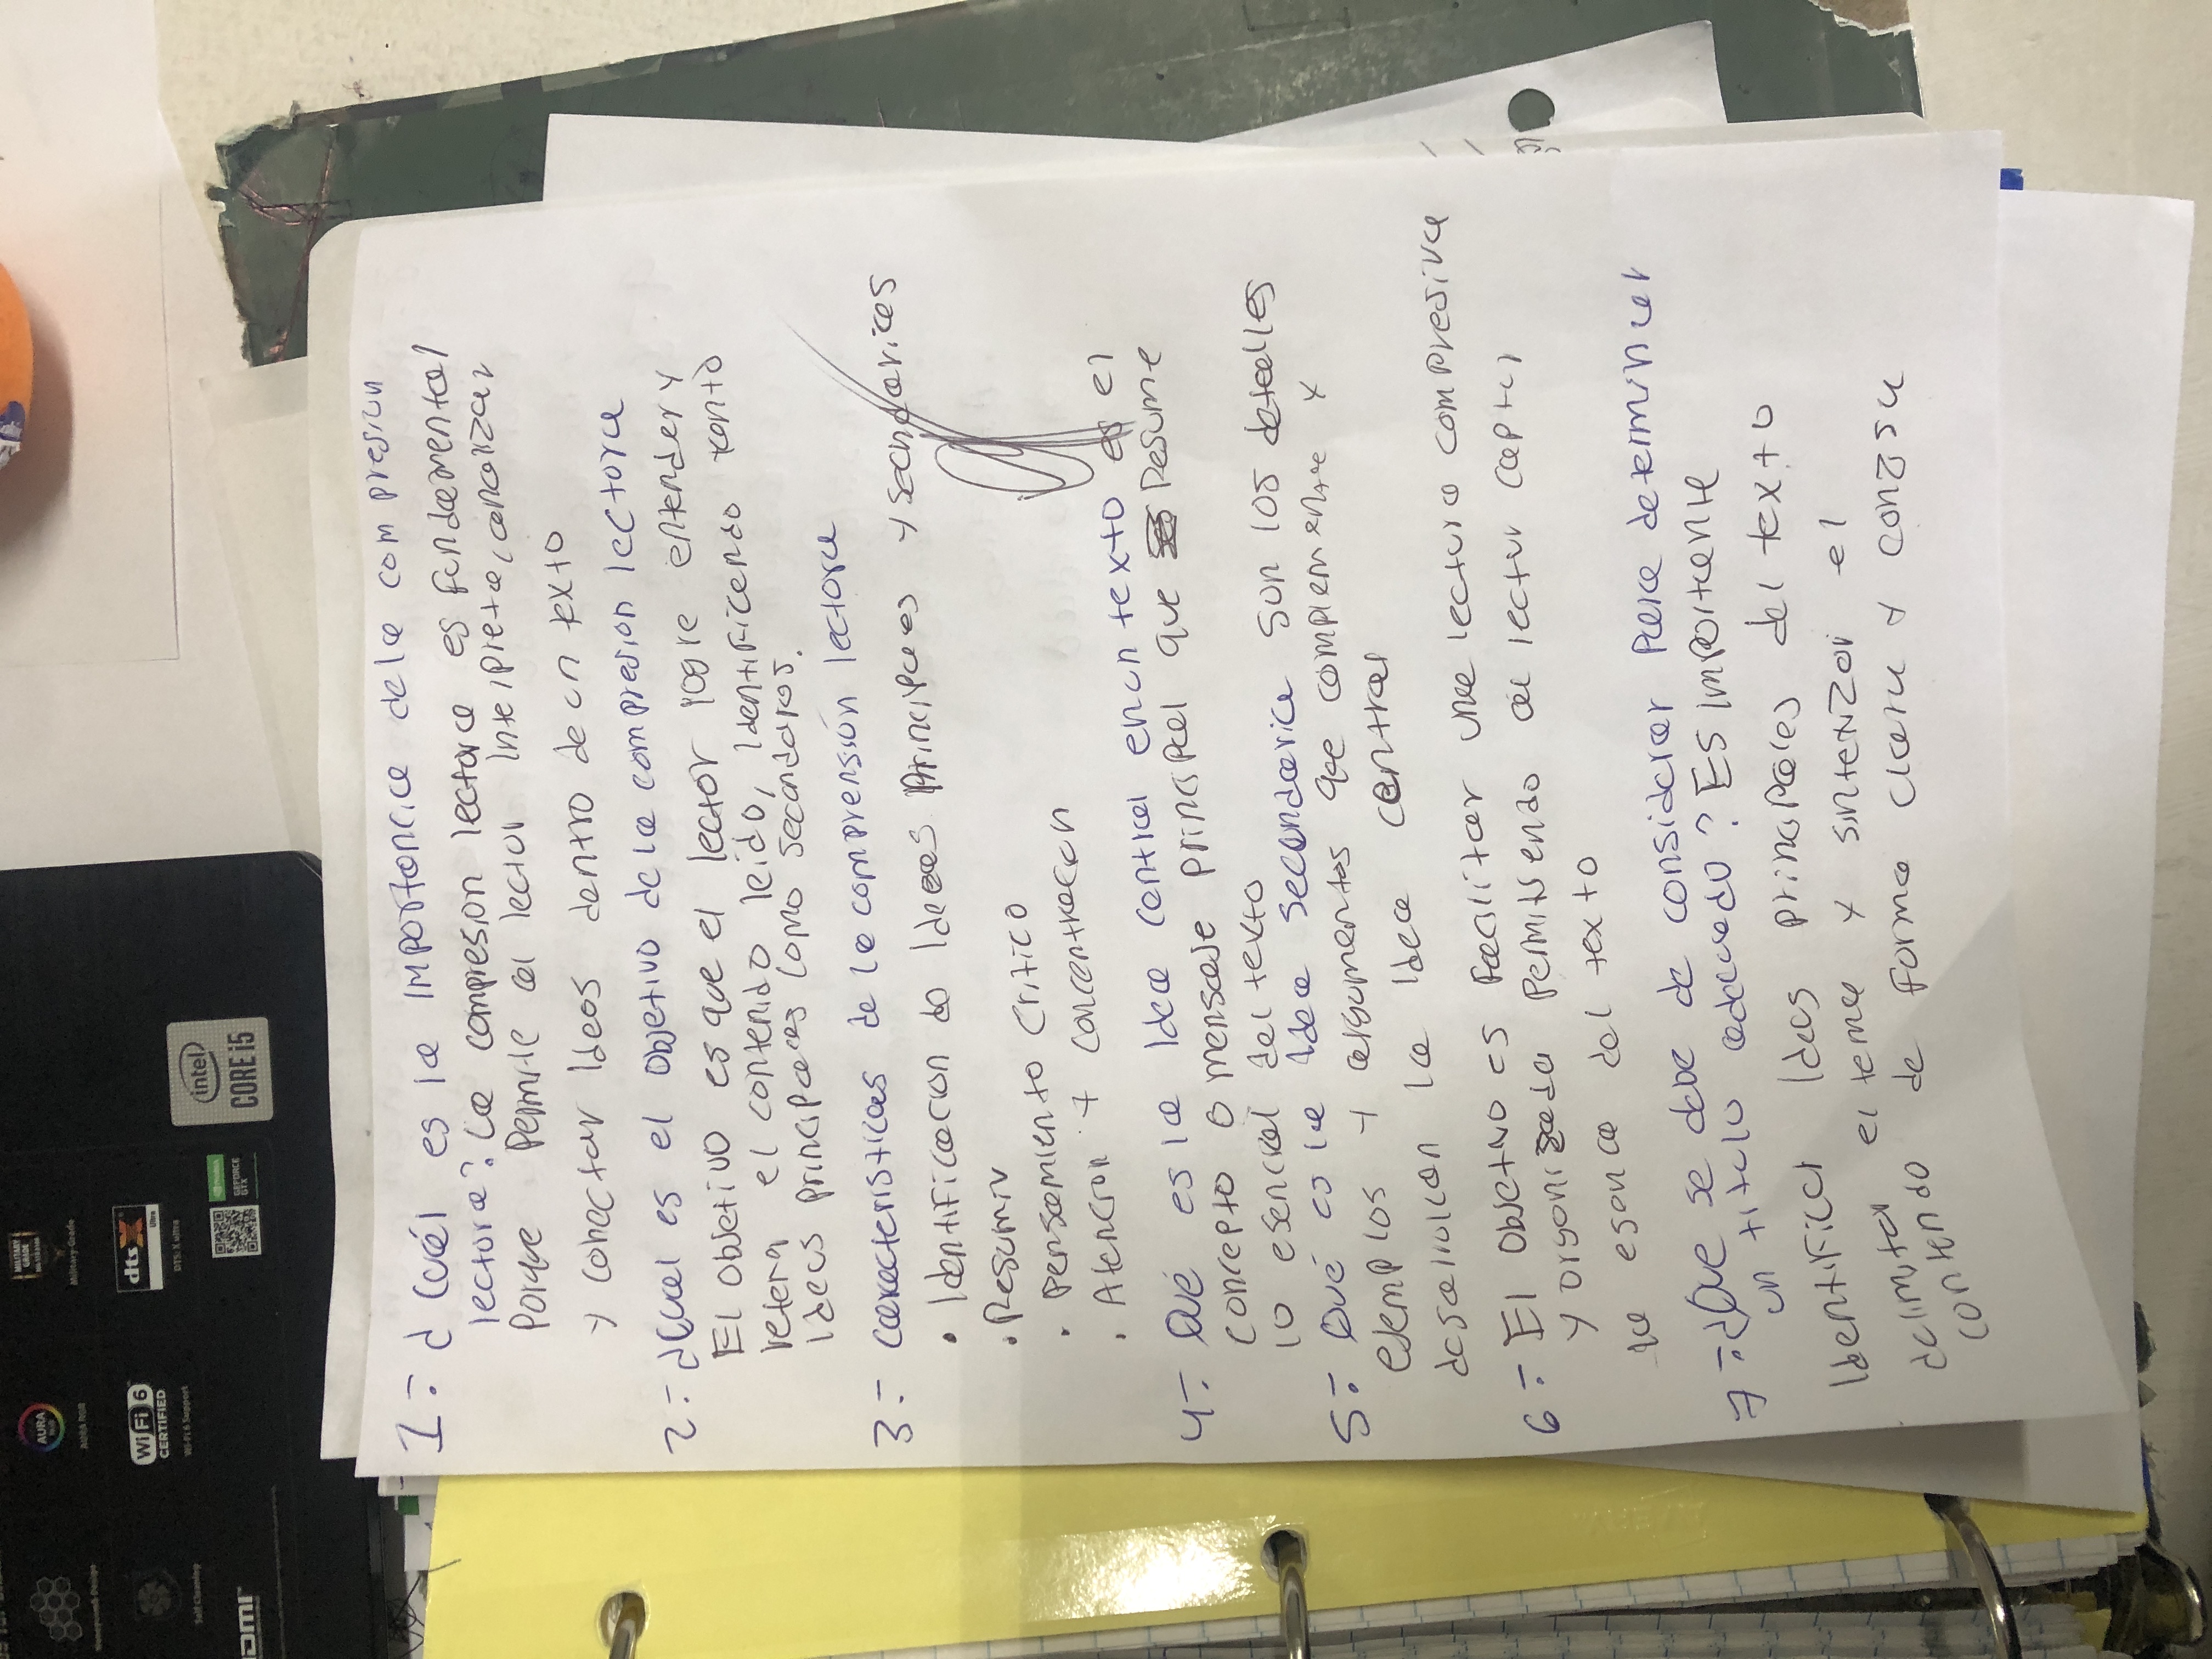 1.- ¿Cuál es la importancia de la compresion
lectora? La compresion lectora es fundamental
porque permite al lector interpreta, analizar
y conectar ideas dentro de un texto
2.- ¿Cual es el objetivo de la compresion lectora
El objetivo es que el lector logre entender y
retena el contenido leido, identificando tanto
ideas principales como secundarios.
3.- caracteristicas de la comprensión lectora
• Identificacion de Ideas principales y secundarias
• Resumir
• Pensamiento Critico
• Atencion y concentracion
4.- Qué es la Idea central en un texto es el
concepto o mensaje principal que Resume
lo esencial del texto
5.- Qué es la Idea secundaria son los detalles
ejemplos y argumentos que complementa y
desarrolan la Idea central
6.- El objetivo es facilitar una lectura compresiva
y organizada permitiendo al lector captar
la esencia del texto
7.- ¿Que se debe de considerar para determinar
un titulo adecuado? Es importante
Identificar Ideas principales del texto
delimitar el tema y sintetizar el
contenido de forma clara y concisa
intel
CORE i5
GEFORCE
GTX
dts X
Ultra
DTS:X Ultra
Military-Grade
AURA
RGB
AURA RGB
Wi Fi 6
CERTIFIED
Wi-Fi 6 Support
Self Cleaning
HDMI